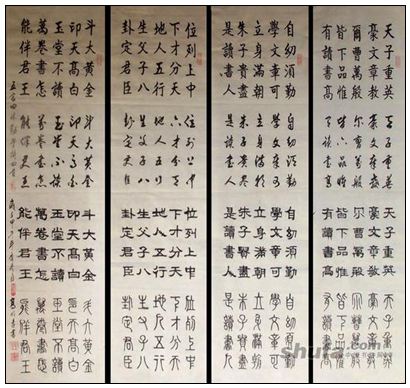 天子重英 天子重英 天子重英 天子重英
豪文章教 豪文章教 豪文章教 豪文章教
爾曹萬般 爾曹萬般 爾曹萬般 爾曹萬般
皆下品惟 皆下品惟 皆下品惟 皆下品惟
有讀書高 有讀書高 有讀書高 有讀書高
自幼須勤 自幼須勤 自幼須勤 自幼須勤
學文章可 學文章可 學文章可 學文章可
立身滿朝 立身滿朝 立身滿朝 立身滿朝
朱子貴盡 朱子貴盡 朱子貴盡 朱子貴盡
是讀書人 是讀書人 是讀書人 是讀書人
位列上中 位列上中 位列上中 位列上中
下才分天 下才分天 下才分天 下才分天
地人五行 地人五行 地人五行 地人五行
生父子八 生父子八 生父子八 生父子八
卦定君臣 卦定君臣 卦定君臣 卦定君臣
斗大黃金 斗大黃金 斗大黃金 斗大黃金
印天高白 印天高白 印天高白 印天高白
玉堂不讀 玉堂不讀 玉堂不讀 玉堂不讀
萬卷書怎 萬卷書怎 萬卷書怎 萬卷書怎
能伴君王 能伴君王 能伴君王 能伴君王